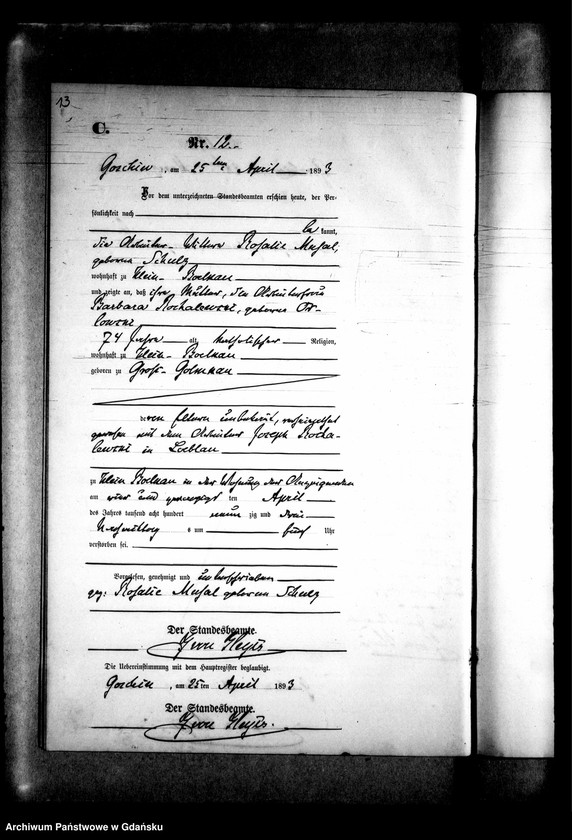 13
C.
Nr. 12.
Goschin, am 25ten April 1893
Vor dem unterzeichneten Standesbeamten erschien heute, der Per-
sönlichkeit nach
be kannt,
die Wittwe Rosalie Musal,
geborene Schulz
wohnhaft zu Klein-Boelkau
und zeigte an, daß ihre Mutter, die
Barbara geborene
74 Jahre alt, katholischer Religion,
wohnhaft zu Klein-Boelkau
geboren zu Groß-Golmkau
deren Eltern unbekannt, verheirathet
gewesen mit dem Joseph
in Loeblau
zu Klein Boelkau in der Wohnung der Anzeigenden
am vier und zwanzigsten April
des Jahres tausend acht hundert neun zig und drei
Nachmittag s um fünf Uhr
verstorben sei.
Vorgelesen, genehmigt und unterschrieben
gez: Rosalie Musal geborene Schulz
Der Standesbeamte.
Die Uebereinstimmung mit dem Hauptregister beglaubigt.
Goschin, am 25ten April 1893
Der Standesbeamte.
Archiwum Państwowe w Gdańsku